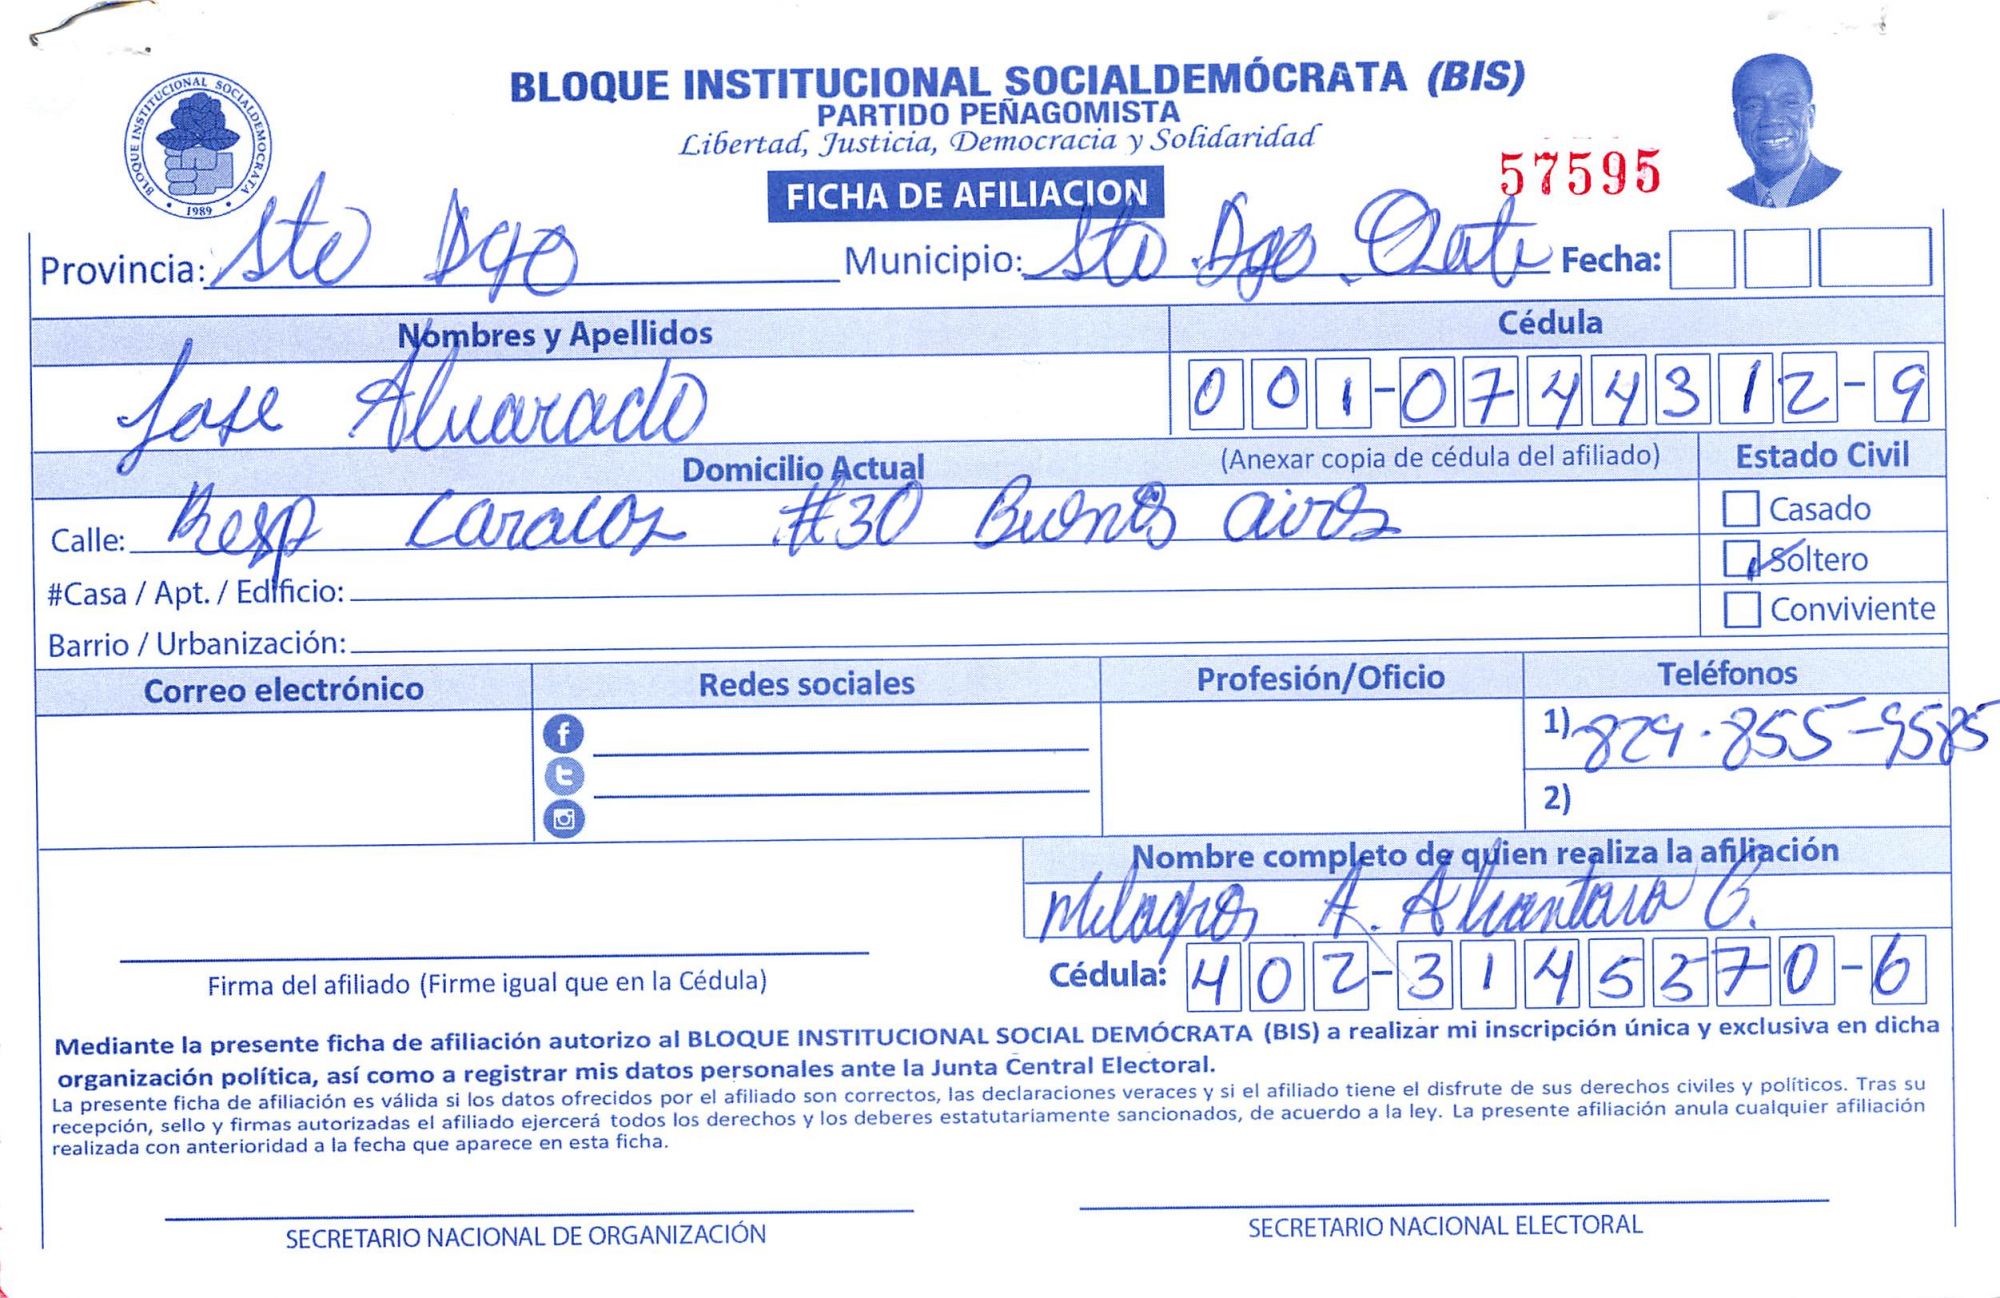 BLOQUE INSTITUCIONAL SOCIALDEMÓCRATA (BIS)
PARTIDO PEÑAGOMISTA
Libertad, Justicia, Democracia y Solidaridad
BLOQUE INSTITUCIONAL SOCIALDEMOCRATA
• 1989 •
57595
FICHA DE AFILIACION
Provincia: Sto Dgo Municipio: Sto Dgo. Oeste Fecha:
Nombres y Apellidos Cédula
Jose Alvarado 001-0744312-9
Domicilio Actual (Anexar copia de cédula del afiliado) Estado Civil
Calle: Resp Caracoz #30 Buenos aires
Casado
Soltero
Conviviente
#Casa / Apt. / Edificio:
Barrio / Urbanización:
Correo electrónico Redes sociales Profesión/Oficio Teléfonos
1) 829-855-9585
2)
Nombre completo de quien realiza la afiliación
Milagros A. Alcantara G.
Cédula: 402-3145570-6
Firma del afiliado (Firme igual que en la Cédula)
Mediante la presente ficha de afiliación autorizo al BLOQUE INSTITUCIONAL SOCIAL DEMÓCRATA (BIS) a realizar mi inscripción única y exclusiva en dicha
organización política, así como a registrar mis datos personales ante la Junta Central Electoral.
La presente ficha de afiliación es válida si los datos ofrecidos por el afiliado son correctos, las declaraciones veraces y si el afiliado tiene el disfrute de sus derechos civiles y políticos. Tras su
recepción, sello y firmas autorizadas el afiliado ejercerá todos los derechos y los deberes estatutariamente sancionados, de acuerdo a la ley. La presente afiliación anula cualquier afiliación
realizada con anterioridad a la fecha que aparece en esta ficha.
SECRETARIO NACIONAL DE ORGANIZACIÓN SECRETARIO NACIONAL ELECTORAL